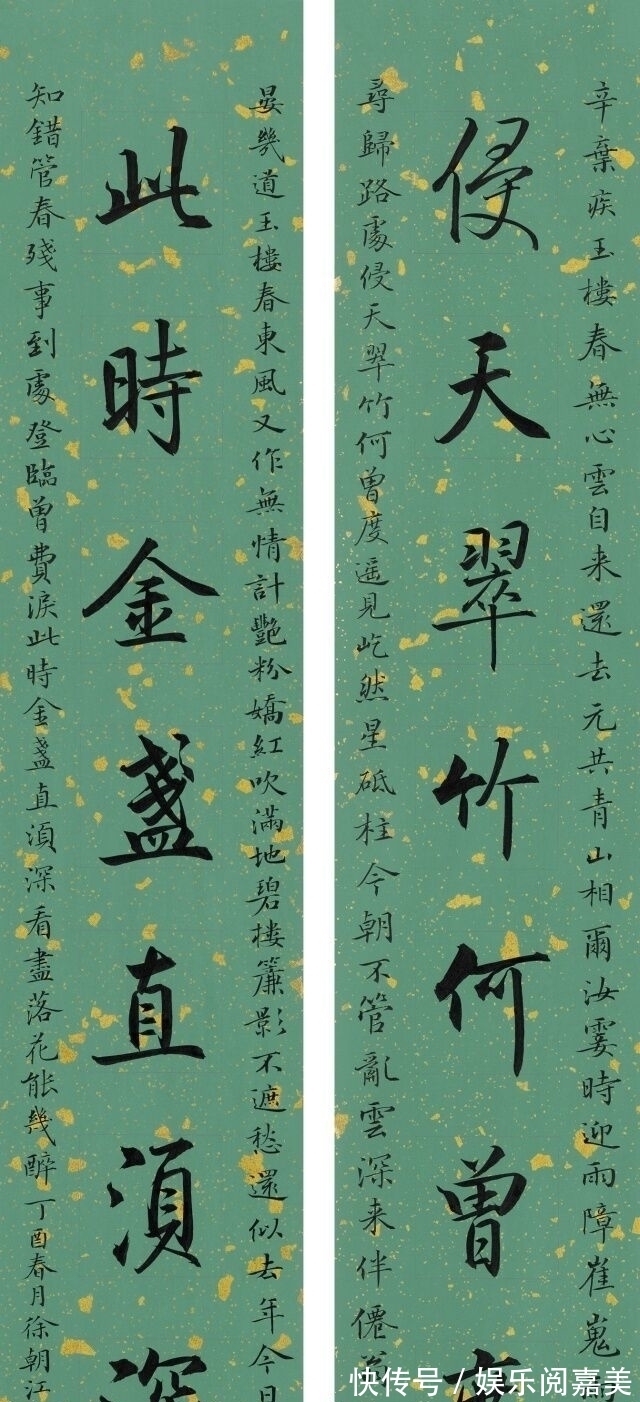 辛棄疾玉樓春無心雲自来還去元共青山相爾汝霎時迎雨障崔嵬雨
侵天翠竹何曾度
尋歸路處侵天翠竹何曾度遥見屹然星砥柱今朝不管亂雲深来伴僊翁
晏幾道玉樓春東風又作無情計艷粉嬌紅吹滿地碧樓簾影不遮愁還似去年今日
此時金盞直湏深
知錯管春殘事到處登臨曾費淚此時金盞直湏深看盡落花能幾醉丁酉春月徐朝江
快传号/娱乐阅嘉美